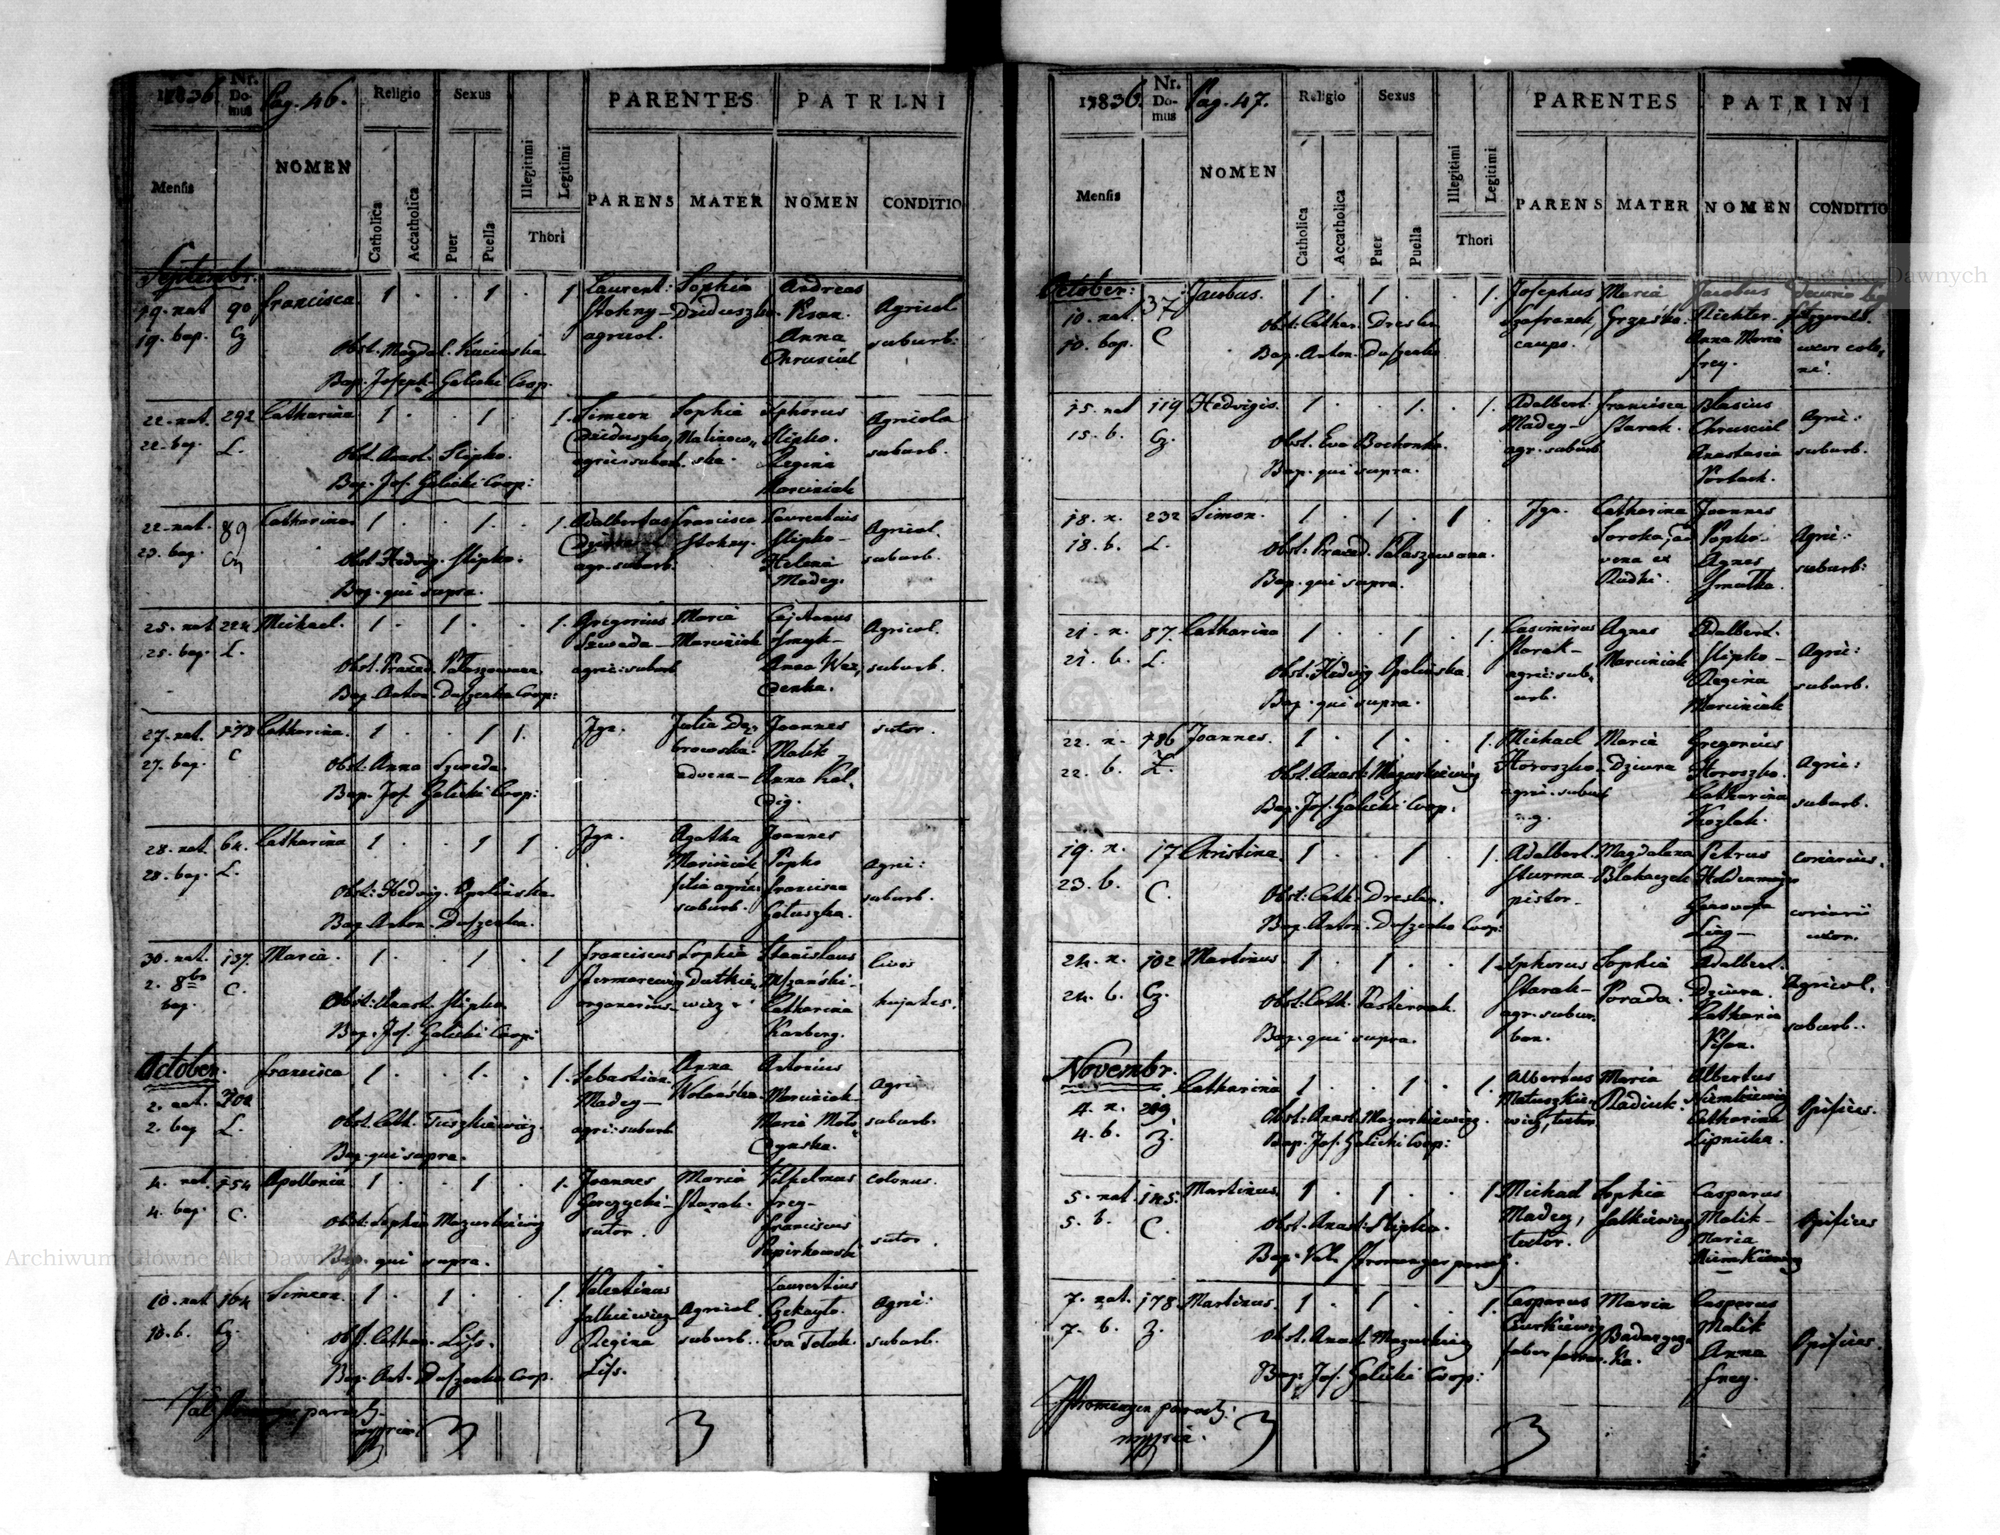 1836. Nr. Domus Pag. 46. Religio Sexus PARENTES PATRINI
Mensis NOMEN Catholica Accatholica Puer Puella Illegitimi Legitimi Thori PARENS MATER NOMEN CONDITIO
Septembr.
19. nat 90 Francisca 1 . . 1 . 1 Laurent: Sophia Andreas Agricol
19. bap. Cz Stokny Dziduszko Pisan. suburb:
agricol. Anna
Obst. Magdal. Chrusciel
Bap. Joseph Galicki Coop.
22. nat 292 Catharina 1 . . 1 . 1. Simeon Sophia Agricola
22. bap L. Dziduszko, Malinow„ Slipko. suburb.
Obst. Anast. Slipko. agric: suburb. ska. Regina
Bap. Jos. Galicki Coop: Marciniak
22. nat. 89 Catharina 1 . . 1 . 1. Adalbertus Francisca Laurentius Agricol.
23. bap. Stokny. Slipko suburb.
Obst. Hedvig. Slipko. agr. suburb. Helena
Bap. qui supra. Madey.
25. nat 224 Michael. 1 . 1 . . 1. Gregorius Maria Cajetanus Agricol.
25. bap. L. Szweda Marciniak Smyk
Obst. Praxed. Pataszowna agric: suburb Anna suburb.
Bap. Anton. Duszenko Coop: denka.
27. nat. 178 Catharina. 1 . . 1 1. Ign. Julia Dą„ Joannes sutor.
27. bap. C browska Malik
Obst: Anna Szweda. advena Anna Kal„
Bap. Jos. Galicki Coop: dig.
28. nat 64. Catharina 1 . . 1 1 . Ign. Agatha Joannes
28. bap. L. Marciniak Popko Agric:
Obst: Hedvig. Opolinska filia agric. Francisca suburb.
Bap. Anton. Duszenko. suburb. Gotuszka.
30. nat. 137. Maria. 1 . . 1 . 1 Franciscus Sophia Stanislaus Civis
2. 8bris C. Dutkie„ Mszański
bap. Obst: Anast. Slipko organarius wicz Catharina hujates.
Bap. Jos. Galicki Coop: Kanberg.
October.
Francisca 1 . . 1. . 1. Sebastian. Anna Antonius Agri
2. nat. 202 Madey Wolańska. Marciniak
2. bap L. Obst. Cath. Tuszkiewicz. agric: suburb Maria suburb.
Bap. qui supra.
4. nat. 154 Apollonia 1 . . 1 . 1. Joannes Maria Vilhelmus colonus.
4. bap. C. Gorzycki Starak. Frey
Obst: Sophia Mazurkiewicz sutor. Franciscus
Bap. qui supra. Papirkowski sutor.
10. nat 164 Simeon. 1 . 1 . . 1. Valentinus Laurentius Agri:
10. b. Cz. Falkiewicz Agricol Czekayło.
Obst. Cathar. Liss. Regina suburb. Eva Tolak. suburb.
Bap. Ant. Duszenko Coop. Liss.
Val. paroch.
mppria
1836. Nr. Domus Pag. 47. Religio Sexus PARENTES PATRINI
Mensis NOMEN Catholica Accatholica Puer Puella Illegitimi Legitimi Thori PARENS MATER NOMEN CONDITIO
October:
10. nat. 137 Jacobus. 1 . 1 . . 1. Josephus Maria Jacobus
10. bap. C Szafranek, Grześko. Richter.
Obst: Cathar. Dresler caupo. Anna Maria uxor colo„
Bap. Anton. Duszenko Frey. ni.
15. nat 119 Hedvigis. 1 . . 1. . 1. Adalbert Francisca Blasius Agri:
15. b. Cz. Madey Starak. Chrusciel
Obst. Eva Bochonko agr. suburb Anastasia suburb.
Bap. qui supra. Portach.
18. n. 232 Simon. 1 . 1 . 1 . Ign. Catharina Joannes
18. b. L. Soroka, ad Popko Agri:
Obst: Praxed. Pataszowna. vena ex Agnes suburb:
Bap. qui supra. Rudki.
21. n. 87. Catharina 1 . . 1 . 1. Casimirus Agnes Adalbert.
21. b. L. Starak Marciniak Slipko Agri:
Obst. Hedvig Opolinska. agric: sub„ Regina suburb.
Bap. qui supra. urb. Marciniak
22. n. 186 Joannes. 1 . 1 . . 1. Michael Maria Gregorius
22. b. Horoszko Dziura Horoszko. Agri:
Obst. Anast. Mazurkiewicz agric. suburb Catharina suburb.
Bap. Jos. Galicki Coop: Kozlak.
19. n. 17 Christina. 1 . . 1 . 1. Adalbert. Magdalena Petrus coriarius.
23. b. C. Sturma
Obst: Cath. Dresler. pistor. coriarii
Bap. Anton. Duszenko Coop: Ling uxor.
24. n. 102 Martinus 1 . 1 . . 1. Sophia Adalbert. Agricol.
24. b. Cz. Starak Porada. Dziura.
Obst: Cath. Pasternak. agr. subur„ Catharin suburb.
Bap. qui supra. ban. Pisan.
Novembr.
Catharina 1 . . 1 . 1. Albertus Maria Albertus
4. n. 219 Matuszkie„ Radiuk. Niemkiewicz Opifices.
4. b. Z. Obst. Anast. Mazurkiewicz. wicz, textor. Catharina
Bap. Jos. Galicki Coop: Lipnicka.
5. nat. 145. Martinus. 1 . 1 . . 1. Michael Sophia Casparus
5. b. C. Madey, Falkiewicz Malik Opifices
Obst. Anast. Slipko. textor. Maria
Bap. Val. Stromenger paroch. Niemkiewicz
7. nat. 178. Martinus. 1 . 1 . . 1. Casparus Maria Casparus
7. b. Z. Malik Opifices.
Obst. Anast Mazurkiewicz faber Anna
Bap. Jos. Galicki Coop: Frey.
Stromenger paroch:
mppria.
Archiwum Główne Akt Dawnych
Archiwum Główne Akt Dawnych